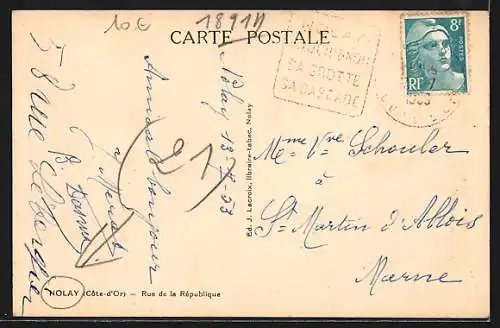 10 €
18914
CARTE POSTALE
NOLAY
SA GROTTE
SA CASCADE
8F
POSTES
RF
Nolay 13-7-53
Amical bonjour
21
58 rue
Ed. J. Lacroix, libraire-tabac, Nolay
Mme Vve Schouler
à
St Martin d'Ablois
Marne
NOLAY (Côte-d'Or) — Rue de la République